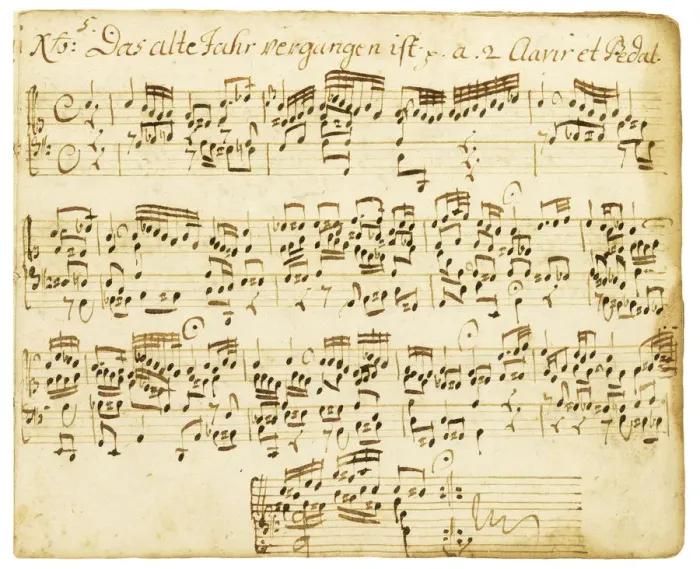 5.
Das alte Jahr vergangen ist a. 2 Clavir et Pedal.